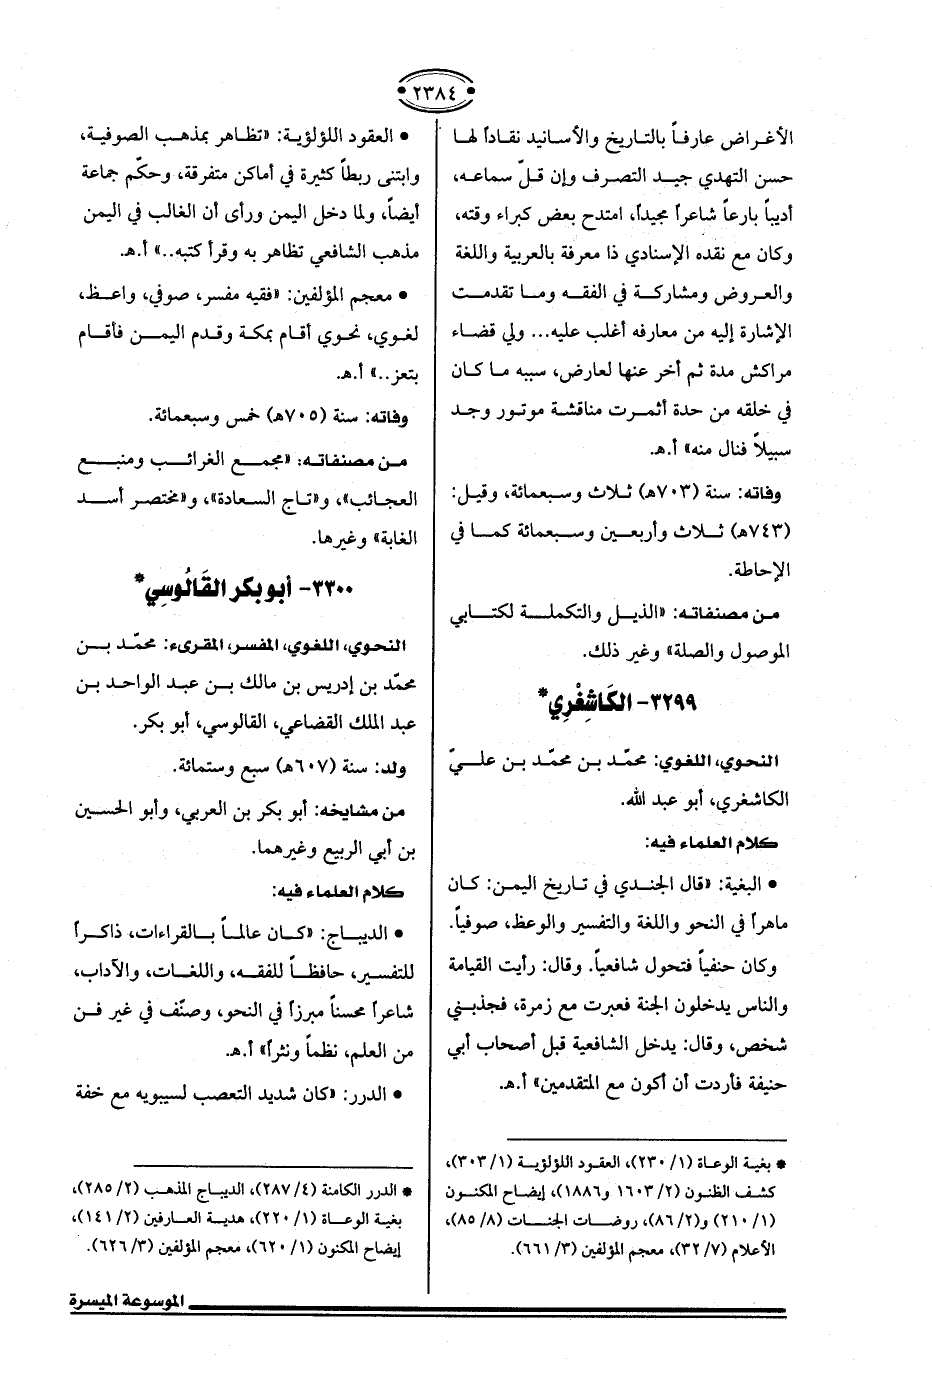 ٢٣٨٤
الأغراض عارفاً بالتاريخ والأسانيد نقاداً لها
حسن التهدي جيد التصرف وإن قلّ سماعه،
أديباً بارعاً شاعراً مجيداً، امتدح بعض كبراء وقته،
وكان مع نقده الإسنادي ذا معرفة بالعربية واللغة
والعروض ومشاركة في الفقه وما تقدمت
الإشارة إليه من معارفه أغلب عليه... ولي قضاء
مراكش مدة ثم أخر عنها لعارض، سببه ما كان
في خلقه من حدة أثمرت مناقشة موتور وجد
سبيلاً فنال منه» أ.هـ.
وفاته: سنة (٧٠٣هـ) ثلاث وسبعمائة، وقيل:
(٧٤٣هـ) ثلاث وأربعين وسبعمائة كما في
الإحاطة.
من مصنفاته: «الذيل والتكملة لكتابي
الموصول والصلة» وغير ذلك.
٣٢٩٩- الكَاشِغْرِي*
النحوي، اللغوي: محمّد بن محمّد بن عليّ
الكاشغري، أبو عبد الله.
كلام العلماء فيه:
• البغية: «قال الجندي في تاريخ اليمن: كان
ماهراً في النحو واللغة والتفسير والوعظ، صوفياً.
وكان حنفياً فتحول شافعياً. وقال: رأيت القيامة
والناس يدخلون الجنة فعبرت مع زمرة، فجذبني
شخص، وقال: يدخل الشافعية قبل أصحاب أبي
حنيفة فأردت أن أكون مع المتقدمين» أ.هـ.
* بغية الوعاة (١/ ٢٣٠)، العقود اللؤلؤية (١/ ٣٠٣)،
كشف الظنون (٢/ ١٦٠٣ و١٨٨٦)، إيضاح المكنون
(١/ ٢١٠) و(٢/ ٨٦)، روضات الجنات (٨/ ٨٥)،
الأعلام (٧/ ٣٢)، معجم المؤلفين (٣/ ٦٦١).
• العقود اللؤلؤية: «تظاهر بمذهب الصوفية،
وابتنى ربطاً كثيرة في أماكن متفرقة، وحكّم جماعة
أيضاً، ولما دخل اليمن ورأى أن الغالب في اليمن
مذهب الشافعي تظاهر به وقرأ كتبه..» أ.هـ.
• معجم المؤلفين: «فقيه مفسر، صوفي، واعظ،
لغوي، نحوي أقام بمكة وقدم اليمن فأقام
بتعز..» أ.هـ.
وفاته: سنة (٧٠٥هـ) خمس وسبعمائة.
من مصنفاته: «مجمع الغرائب ومنبع
العجائب»، و«تاج السعادة»، و«مختصر أسد
الغابة» وغيرها.
٣٣٠٠- أبو بكر القَالُوسِي*
النحوي، اللغوي، المفسر، المقرىء: محمّد بن
محمّد بن إدريس بن مالك بن عبد الواحد بن
عبد الملك القضاعي، القالوسي، أبو بكر.
ولد: سنة (٦٠٧هـ) سبع وستمائة.
من مشايخه: أبو بكر بن العربي، وأبو الحسين
بن أبي الربيع وغيرهما.
كلام العلماء فيه:
• الديباج: «كان عالماً بالقراءات، ذاكراً
للتفسير، حافظاً للفقه، واللغات، والآداب،
شاعراً محسناً مبرزاً في النحو، وصنّف في غير فن
من العلم، نظماً ونثراً» أ.هـ.
• الدرر: «كان شديد التعصب لسيبويه مع خفة
* الدرر الكامنة (٤/ ٢٨٧)، الديباج المذهب (٢/ ٢٨٥)،
بغية الوعاة (١/ ٢٢٠)، هدية العارفين (٢/ ١٤١)،
إيضاح المكنون (١/ ٦٢٠)، معجم المؤلفين (٣/ ٦٢٦).
الموسوعة الميسرة